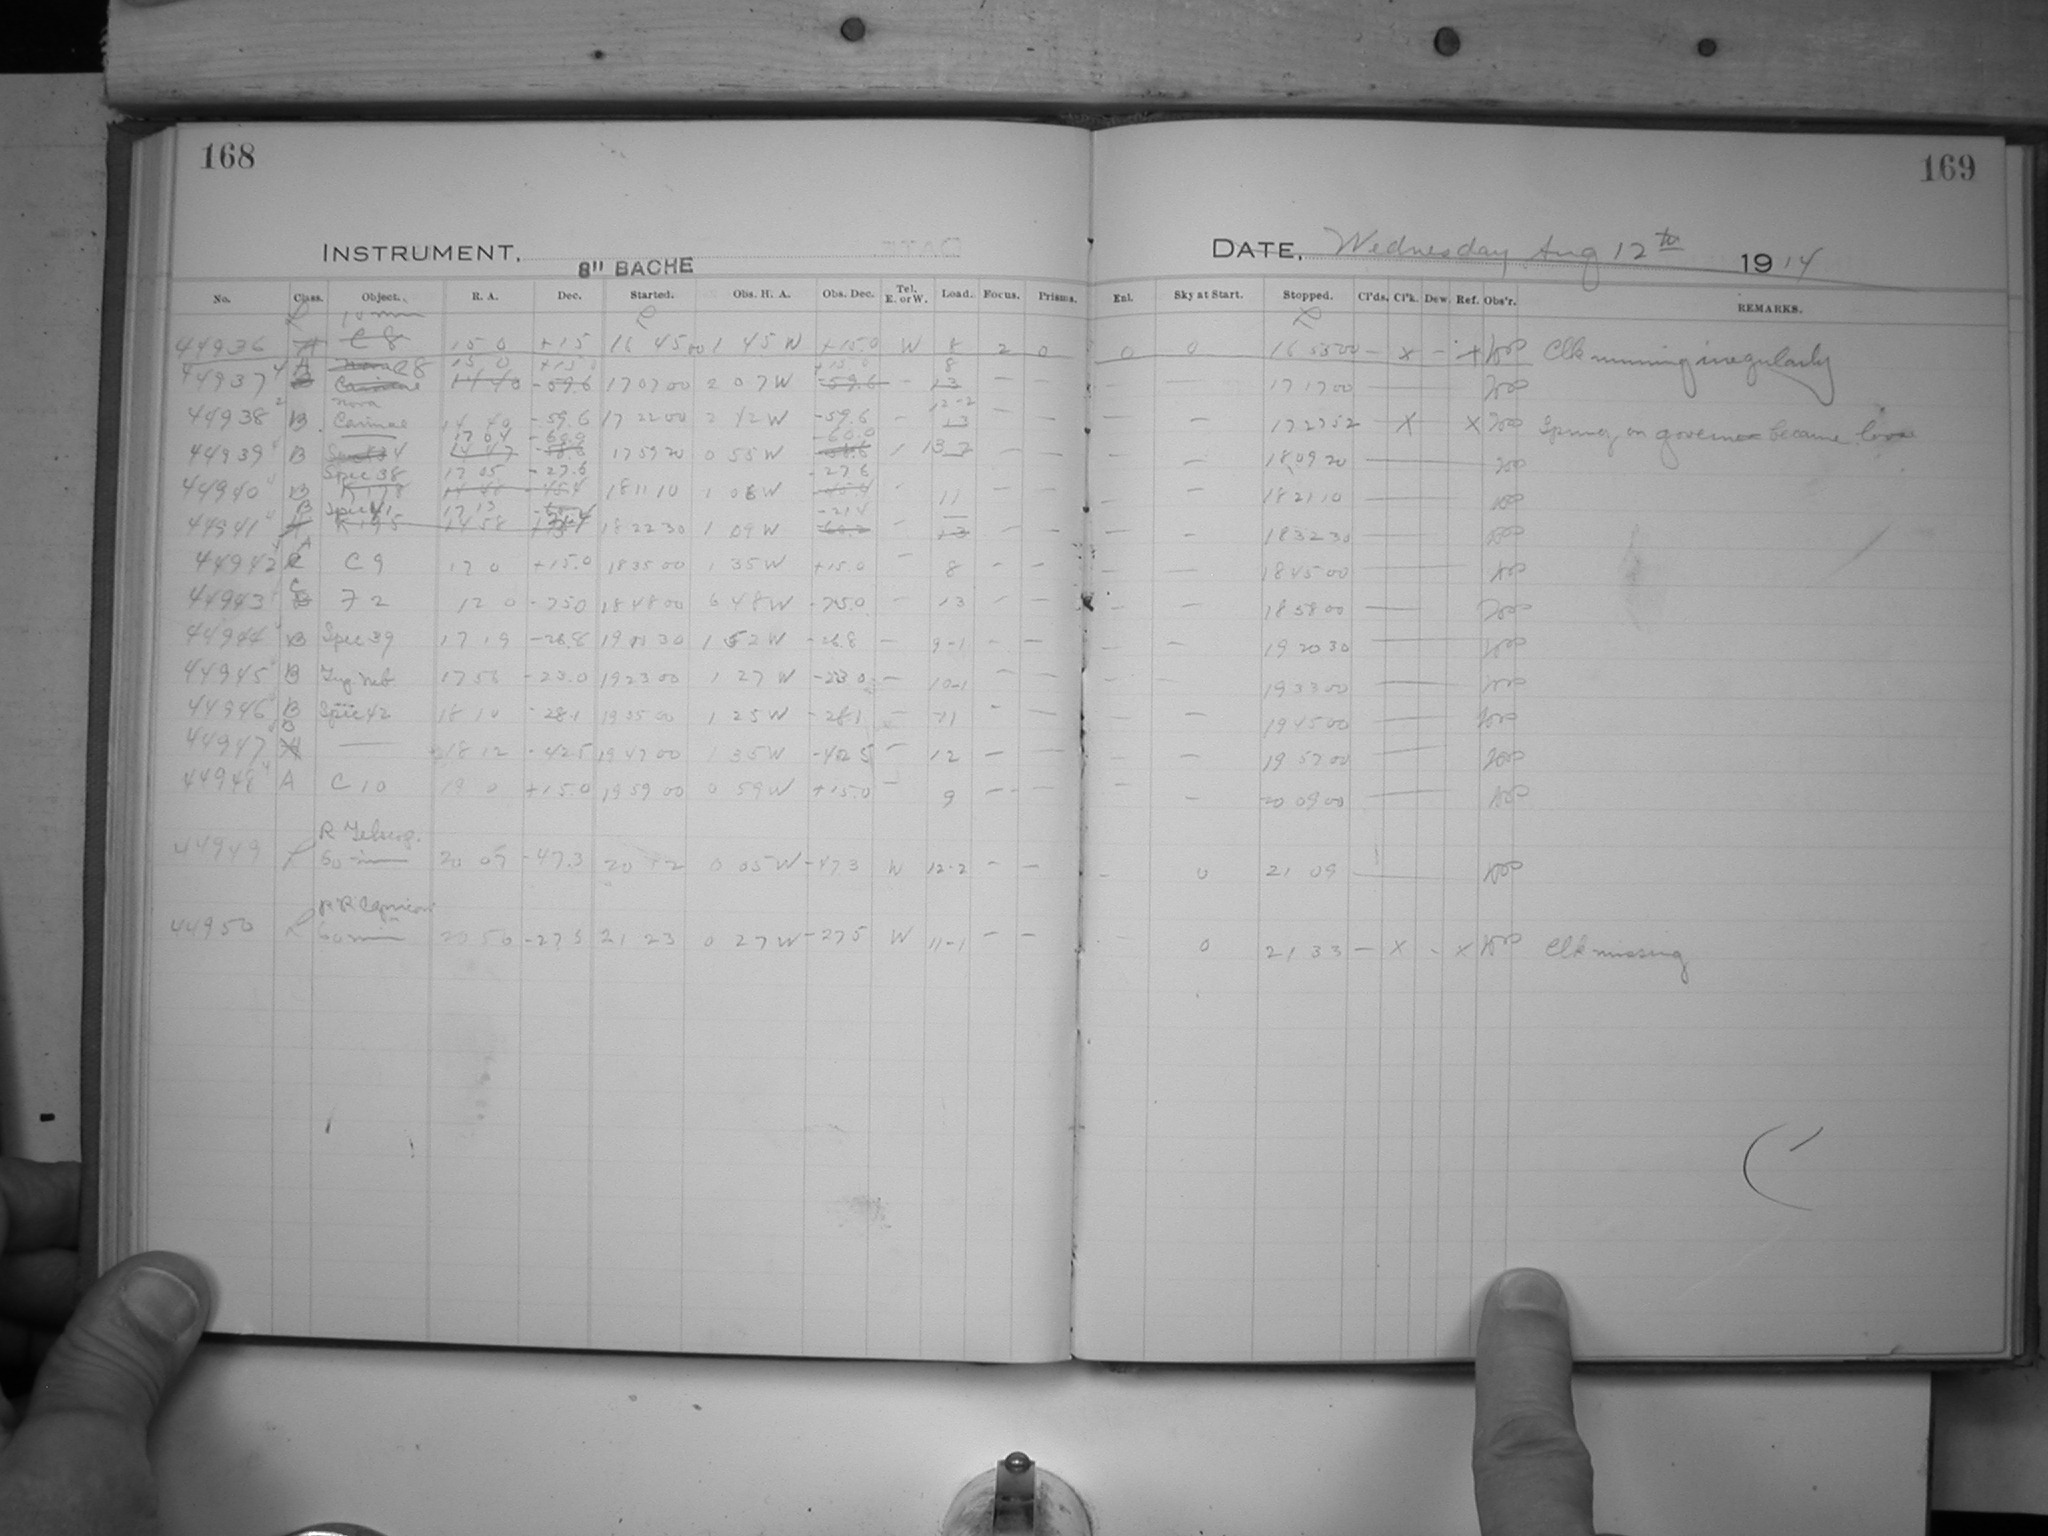 168
169
INSTRUMENT. 8" BACHE
DATE. Wednesday Aug 12th 1914
No. Class. Object. R. A. Dec. Started. Obs. H. A. Obs. Dec. Tel. E. or W. Load. Focus. Prisms. Enl. Sky at Start. Stopped. Cl'ds. Cl'k. Dew. Ref. Obs'r. REMARKS.
10 min
44936 A C 8 15 0 +15 16 45 00 1 45 W +15.0 W 8 2 0 0 0 16 55 00 - x - x Clk running irregularly
A C8 15 0 +15.0 +15.0 8
44937 Carinae 14 40 -59.6 17 07 00 2 07 W -59.6 - 13 - - - - 17 17 00
Nova 12-2
44938 B Carinae 14 40 -59.6 17 22 00 2 42 W -59.6 - 13 - - - - 17 27 52 x x Spring on governor became loose
17 04 -60.0 -60.0
44939 B 14 47 17 59 20 0 55 W 13-2 - - - - 18 09 20
Spec 38 17 05 -27.6 -27.6
44940 B K 178 14 48 -45.4 18 11 10 1 06 W -45.4 11 - - - - 18 21 10
B Spec 41 17 13 -21.4
44941 K 195 14 58 18 22 30 1 09 W 13 - - - - 18 32 30
A
44942 C 9 17 0 +15.0 18 35 00 1 35 W +15.0 - 8 - - - - 18 45 00
C
44943 F 2 12 0 -75.0 18 48 00 6 48 W -75.0 - 13 - - - - 18 58 00
44944 B Spec 39 17 19 -26.8 19 30 1 52 W -26.8 - 9-1 - - - - 19 20 30
44945 B Trif. Neb. 17 56 -23.0 19 23 00 1 27 W -23.0 - 10-1 - - - - 19 33 00
44946 B Spec 42 18 10 -28.1 19 35 00 1 25 W -28.1 - 11 - - - - 19 45 00
44947 — 18 12 -42.5 19 47 00 1 35 W -42.5 - 12 - - - - 19 57 00
44948 A C 10 19 0 +15.0 19 59 00 0 59 W +15.0 - 9 - - - - 20 09 00
R Telescop.
44949 60 min 20 07 -47.3 20 12 0 05 W -47.3 W 12-2 - - - 0 21 09
R Capricorni
44950 60 min 20 56 -27.5 21 23 0 27 W -27.5 W 11-1 - - - 0 21 33 - x - x Clk missing